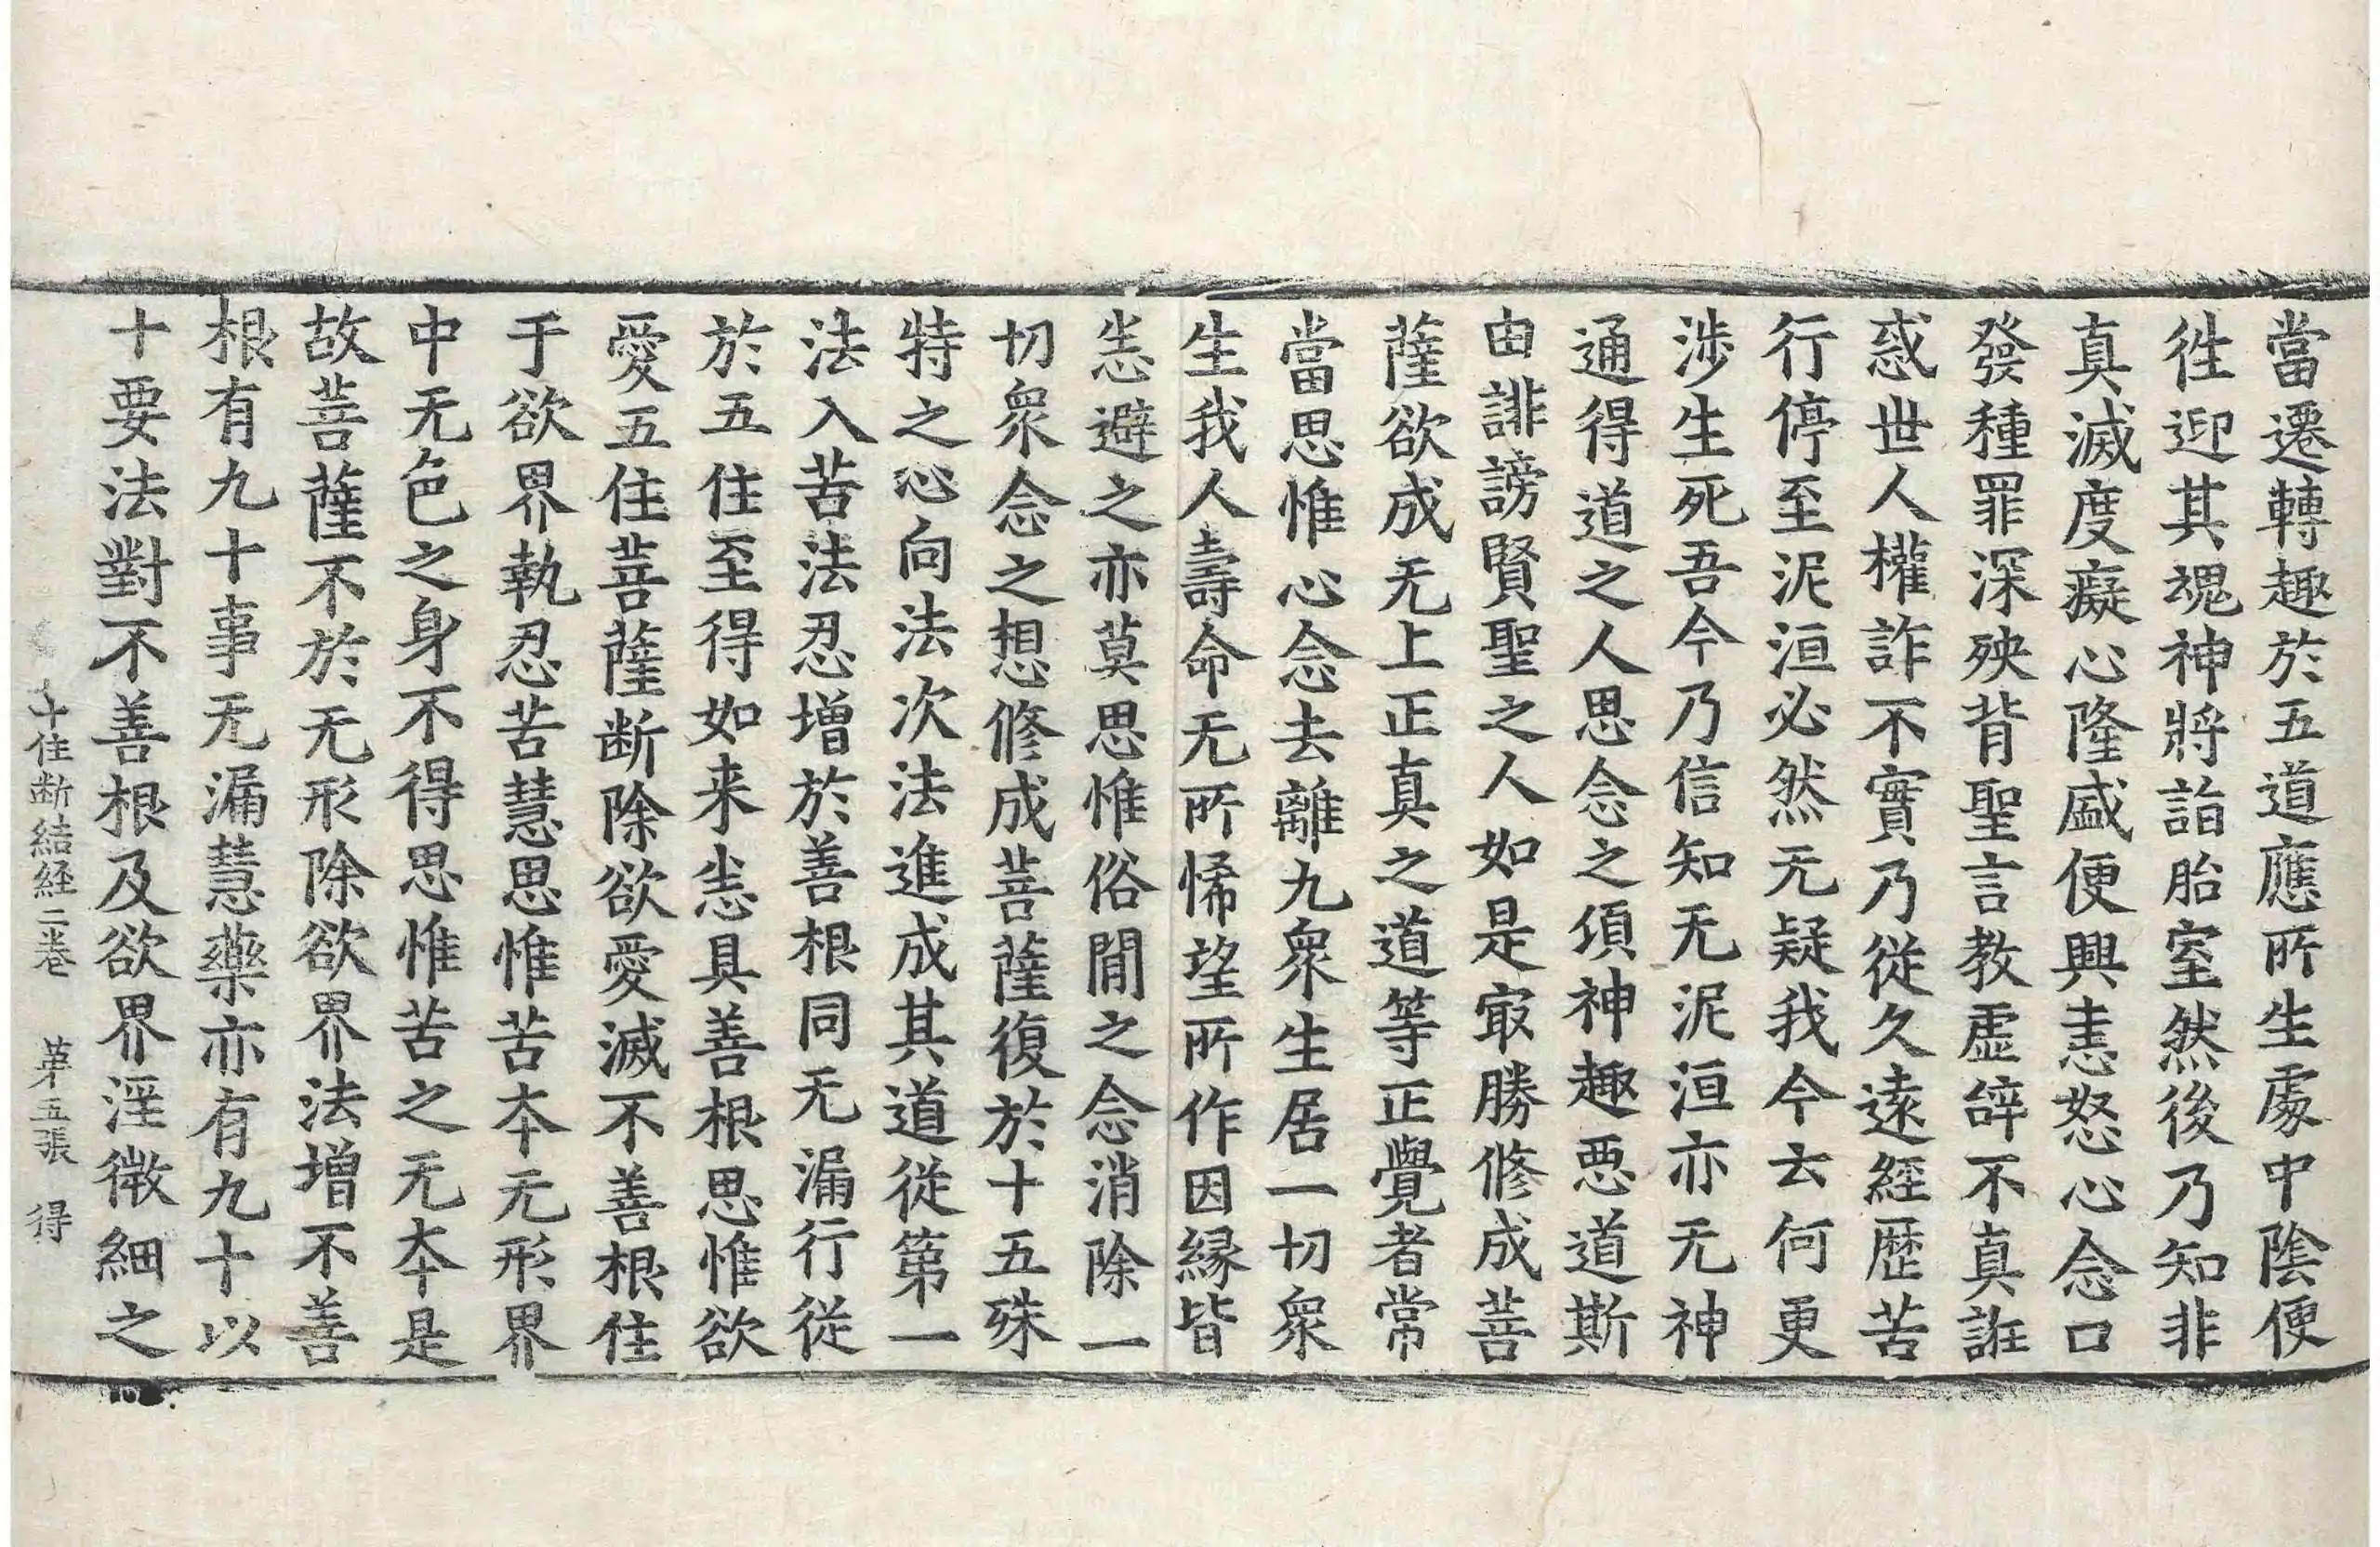 當遷轉趣於五道應所生處中陰便
徃迎其魂神將詣胎室然後乃知非
真滅度癡心隆盛便興恚怒心念口
發種罪深殃背聖言教虛辝不真誑
惑世人權詐不實乃從久遠經歷苦
行停至泥洹必然无疑我今云何更
涉生死吾今乃信知无泥洹亦无神
通得道之人思念之須神趣惡道斯
由誹謗賢聖之人如是㝡勝修成菩
薩欲成无上正真之道等正覺者常
當思惟心念去離九衆生居一切衆
生我人壽命无所悕望所作因縁皆
恙避之亦莫思惟俗閒之念消除一
切衆念之想修成菩薩復於十五殊
特之心向法次法進成其道從第一
法入苦法忍增於善根同无漏行從
於五住至得如来恙具善根思惟欲
愛五住菩薩断除欲愛滅不善根住
于欲界執忍苦慧思惟苦夲无形界
中无色之身不得思惟苦之无夲是
故菩薩不於无形除欲界法增不善
根有九十事无漏慧藥亦有九十以
十要法對不善根及欲界淫微細之
十住断結経二卷 苐五張 得